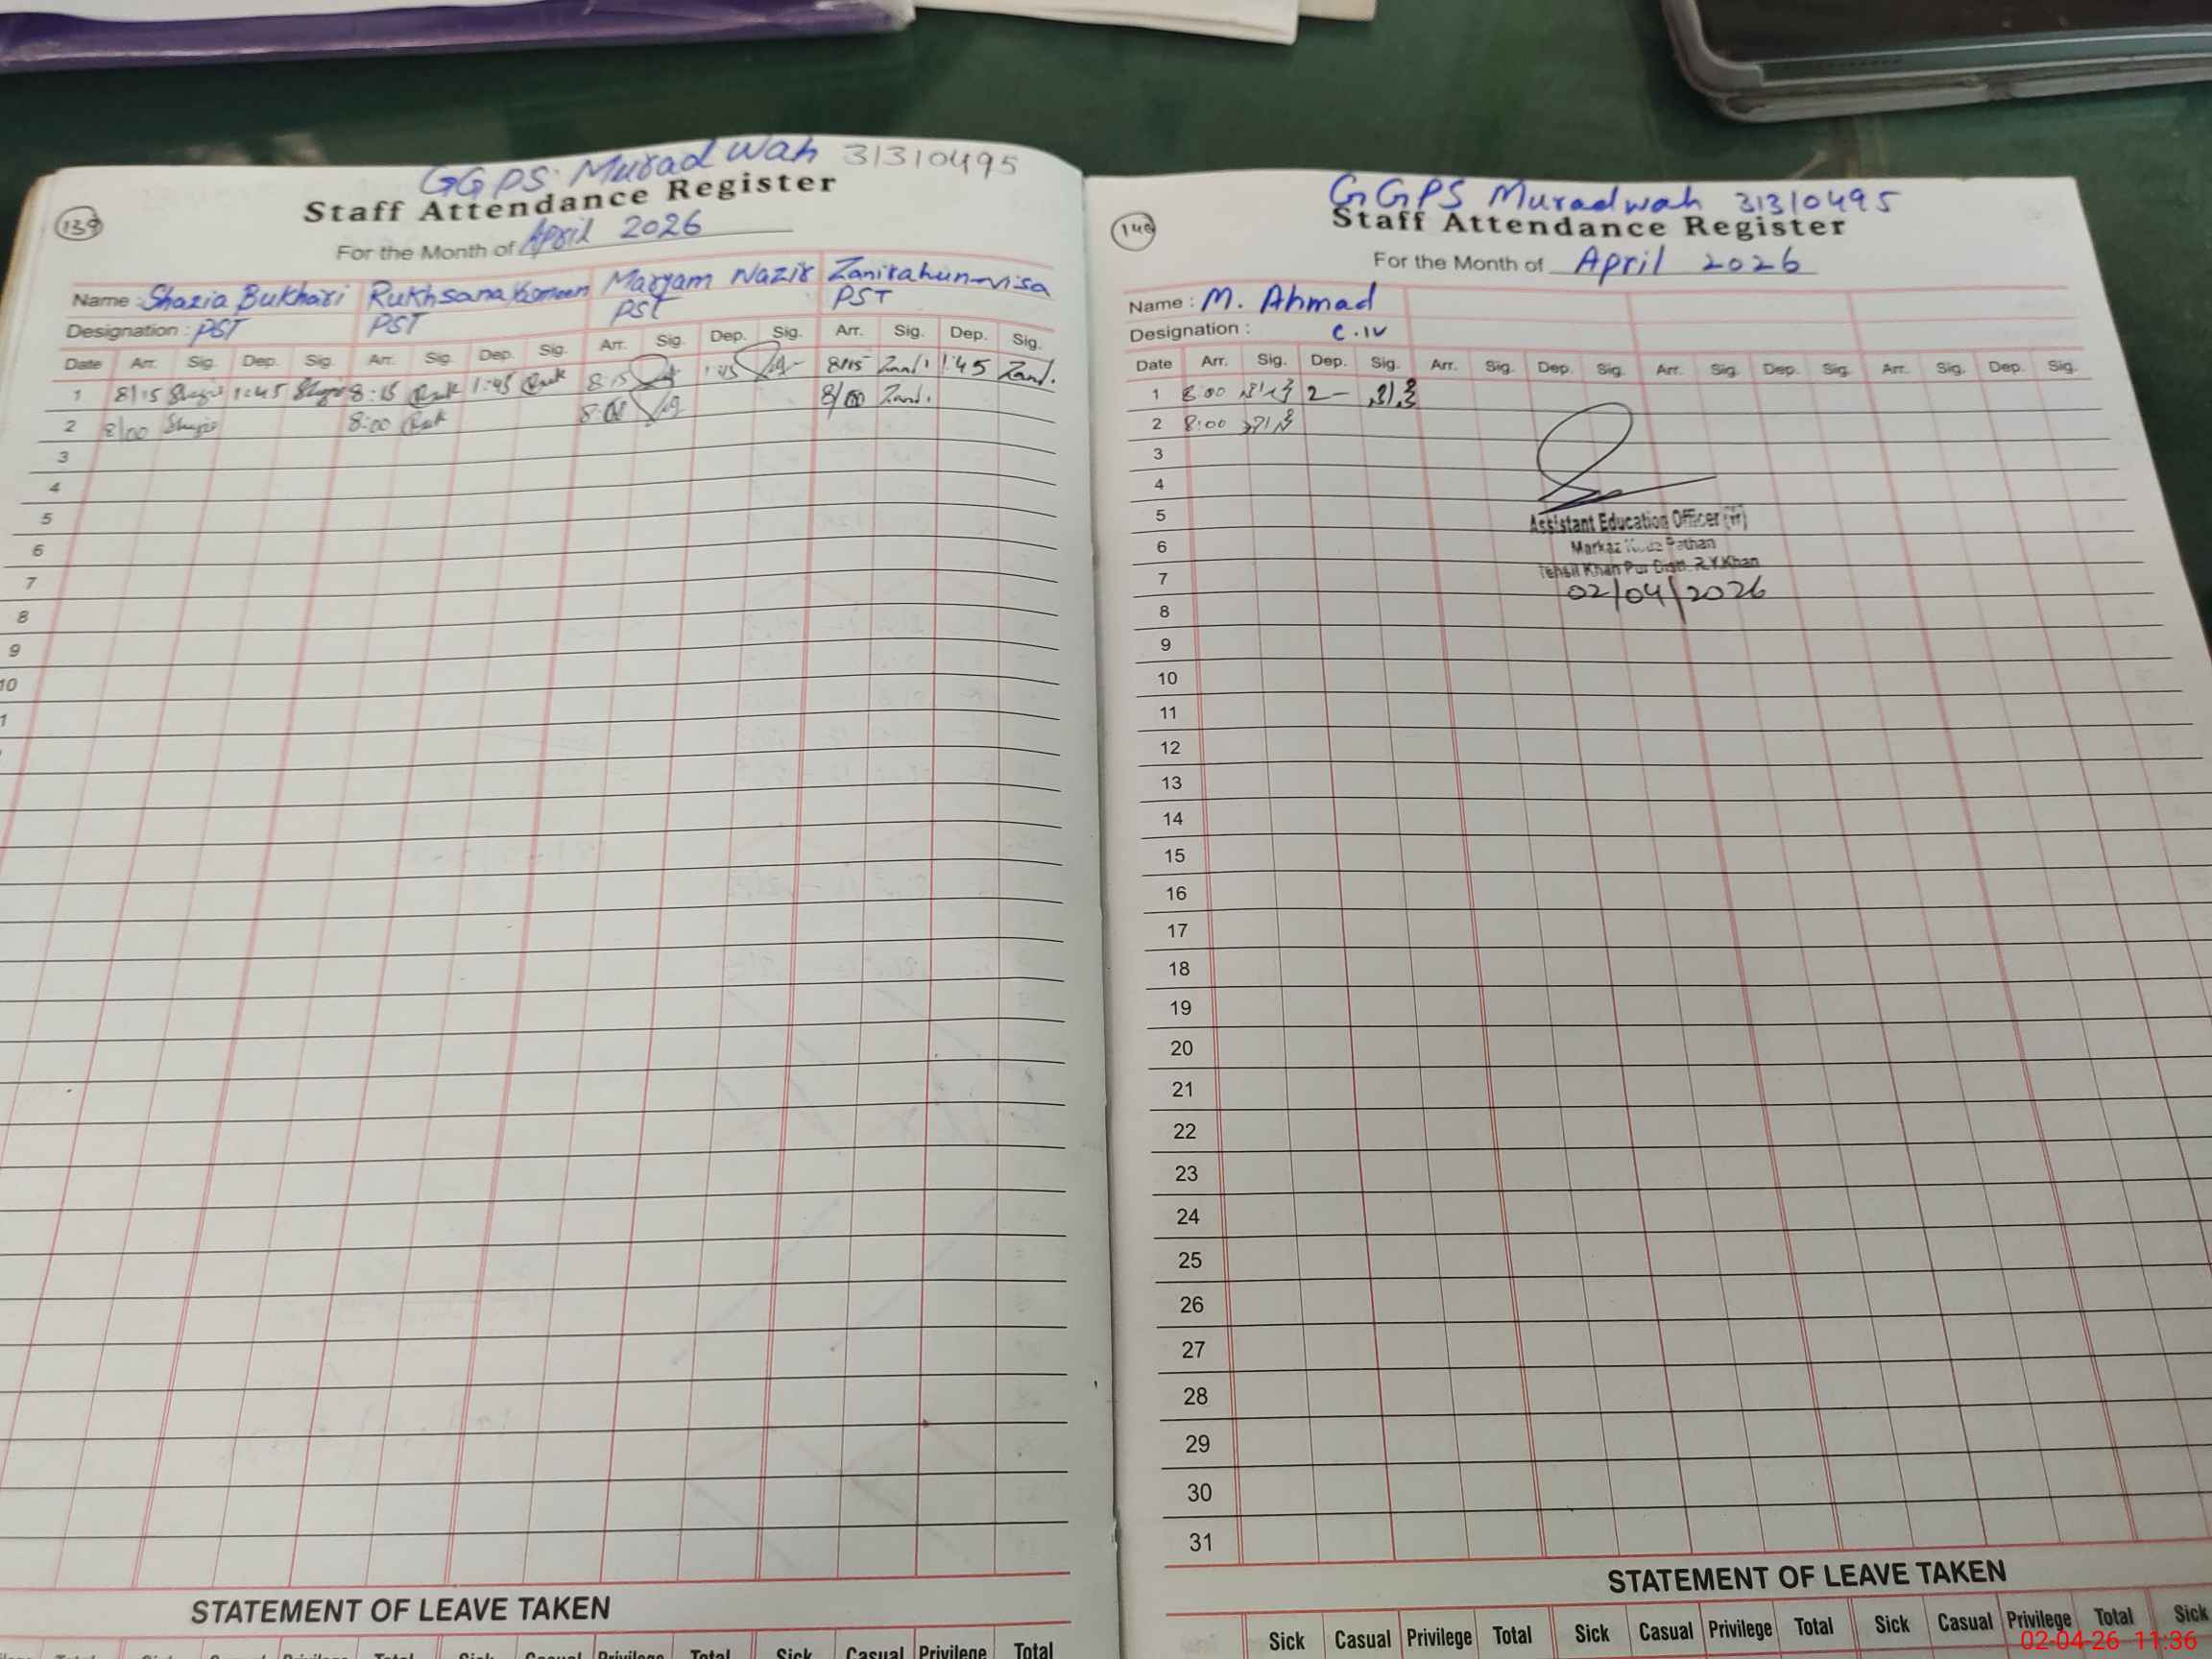 GGPS Muradwah 31310495
Staff Attendance Register
139
For the Month of April 2026
Name : Shazia Bukhari Rukhsana Yasmeen Maryam Nazir Zanirahun-nisa
Designation : PST PST PST PST
Date Arr. Sig. Dep. Sig. Arr. Sig. Dep. Sig. Arr. Sig. Dep. Sig. Arr. Sig. Dep. Sig.
1 8/15 1:45 8:15 1:45 8:15 1:45 8/15 1:45
2 8/00 8:00 8:00 8/00
3
4
5
6
7
8
9
10
1
STATEMENT OF LEAVE TAKEN
Total Sick Casual Privilege Total Sick Casual Privilege Total
GGPS Muradwah 31310495
Staff Attendance Register
140
For the Month of April 2026
Name : M. Ahmad
Designation : C.IV
Date Arr. Sig. Dep. Sig. Arr. Sig. Dep. Sig. Arr. Sig. Dep. Sig. Arr. Sig. Dep. Sig.
1 8:00 2-
2 8:00
3
4
5
Assistant Education Officer
6
Markaz Pathan
7
Tehsil Khan Pur Distt. R.Y.Khan
02/04/2026
8
9
10
11
12
13
14
15
16
17
18
19
20
21
22
23
24
25
26
27
28
29
30
31
STATEMENT OF LEAVE TAKEN
Sick Casual Privilege Total Sick Casual Privilege Total Sick Casual Privilege Total Sick
02-04-26 11:36